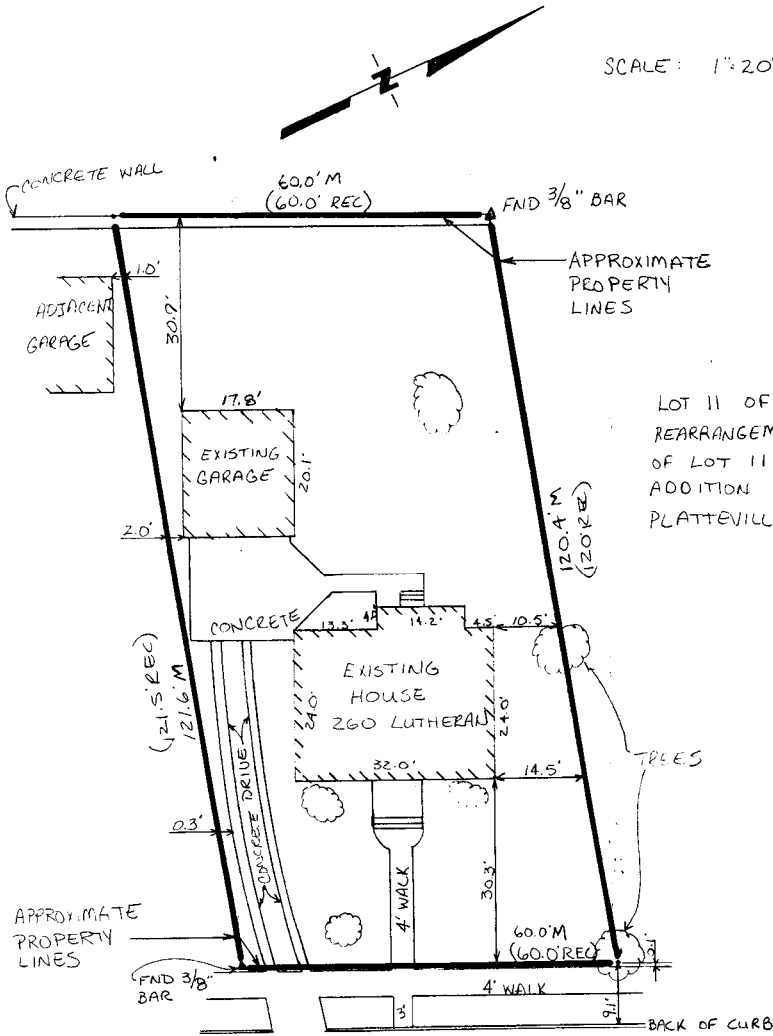 N
SCALE: 1"=20'
CONCRETE WALL
60.0' M
(60.0' REC)
FND 3/8" BAR
APPROXIMATE
PROPERTY
LINES
1.0'
ADJACENT
GARAGE
30.9'
17.8'
EXISTING
GARAGE
20.1'
LOT 11 OF
REARRANGEM
OF LOT 11
ADDITION
PLATTEVILL
2.0'
120.4' M
(120' REC)
CONCRETE
13.3'
14.2'
4.5'
10.5'
(121.5' REC)
121.6' M
EXISTING
HOUSE
260 LUTHERAN
24.0'
24.0'
32.0'
14.5'
TREES
0.3'
CONCRETE DRIVE
4' WALK
30.3'
APPROXIMATE
PROPERTY
LINES
60.0' M
(60.0' REC)
FND 3/8"
BAR
4' WALK
3'
9.1'
BACK OF CURB